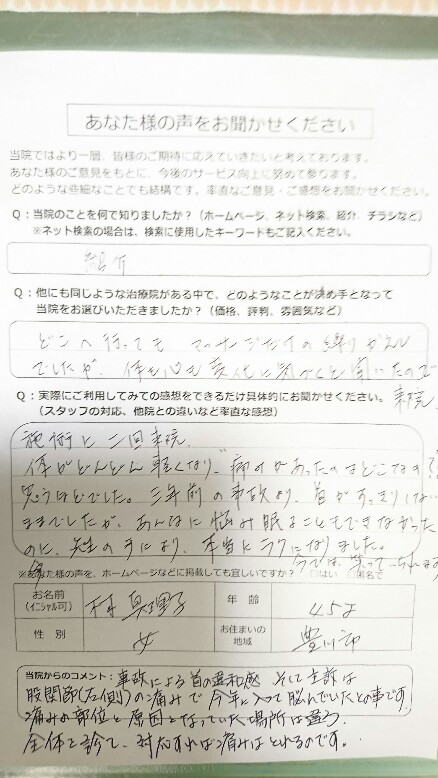 あなた様の声をお聞かせください
当院ではより一層、皆様のご期待に応えていきたいと考えております。
あなた様のご意見をもとに、今後のサービス向上に努めて参ります。
どのような些細なことでも結構です。率直なご意見・ご感想をお聞かせください。
Q：当院のことを何で知りましたか？（ホームページ、ネット検索、紹介、チラシなど）
※ネット検索の場合は、検索に使用したキーワードもご記入ください。
紹介
Q：他にも同じような治療院がある中で、どのようなことが決め手となって
当院をお選びいただきましたか？（価格、評判、雰囲気など）
どこへ行っても マッサージだけの繰りかえし
でしたが、体も心も変化に気づくと聞いたので
来院
Q：実際にご利用してみての感想をできるだけ具体的にお聞かせください。
（スタッフの対応、他院との違いなど率直な感想）
施術と二回来院。
体がどんどん軽くなり、痛みがあったのはどこなの？と
思うほどでした。三年前の事故より、首がすっきりしない
ままでしたが、あんなに悩み眠ることもできなかった
のに、先生の手により、本当にラクになりました。
今では、笑っていられます
※あなた様の声を、ホームページなどに掲載しても宜しいですか？ □はい □匿名で
お名前
（イニシャル可）
村 真理子
年 齢
45才
性 別
女
お住まいの
地域
豊川市
当院からのコメント：事故による首の違和感 そして主訴は
股関節（左側）の痛みで今年に入って悩んでいたとの事です。
痛みの部位と原因となっていた場所は違う。
全体を診て、対応すれば痛みはとれるのです。